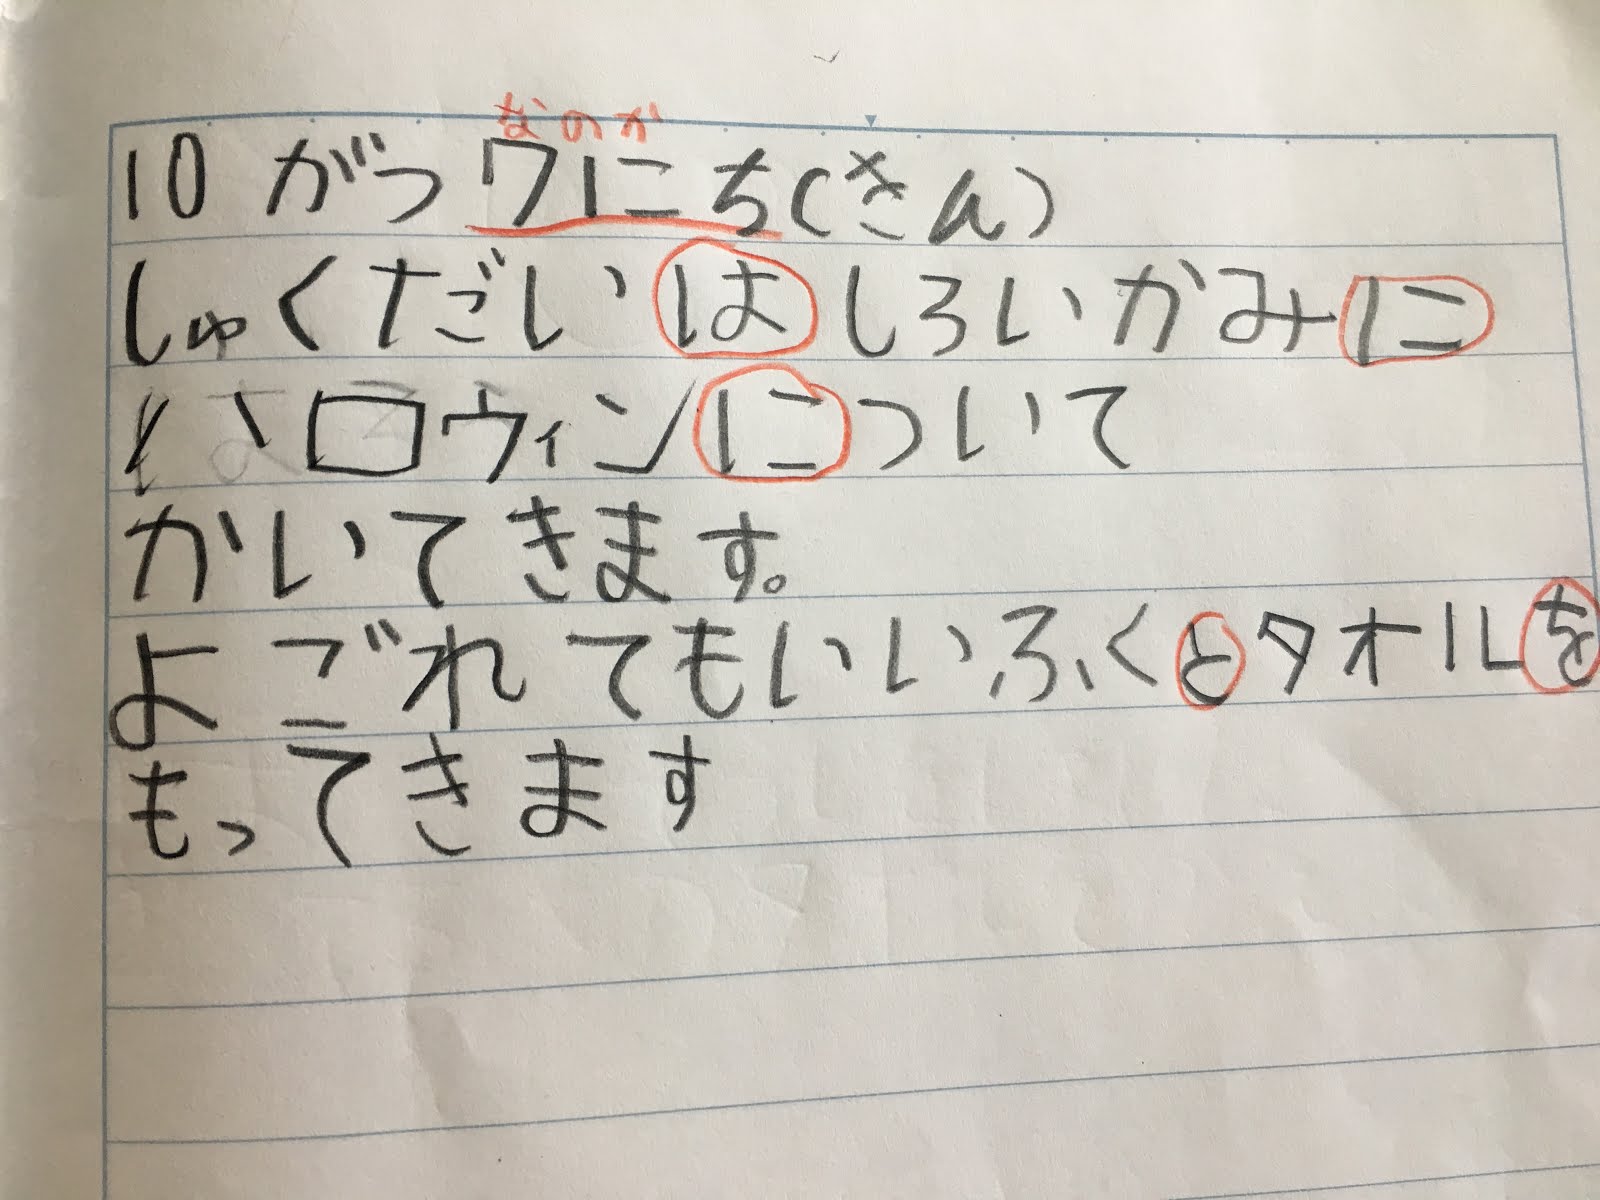 なのか
10がつ7にち(きん)
しゅくだいはしろいかみに
ハロウィンについて
かいてきます。
よごれてもいいふくとタオルを
もってきます